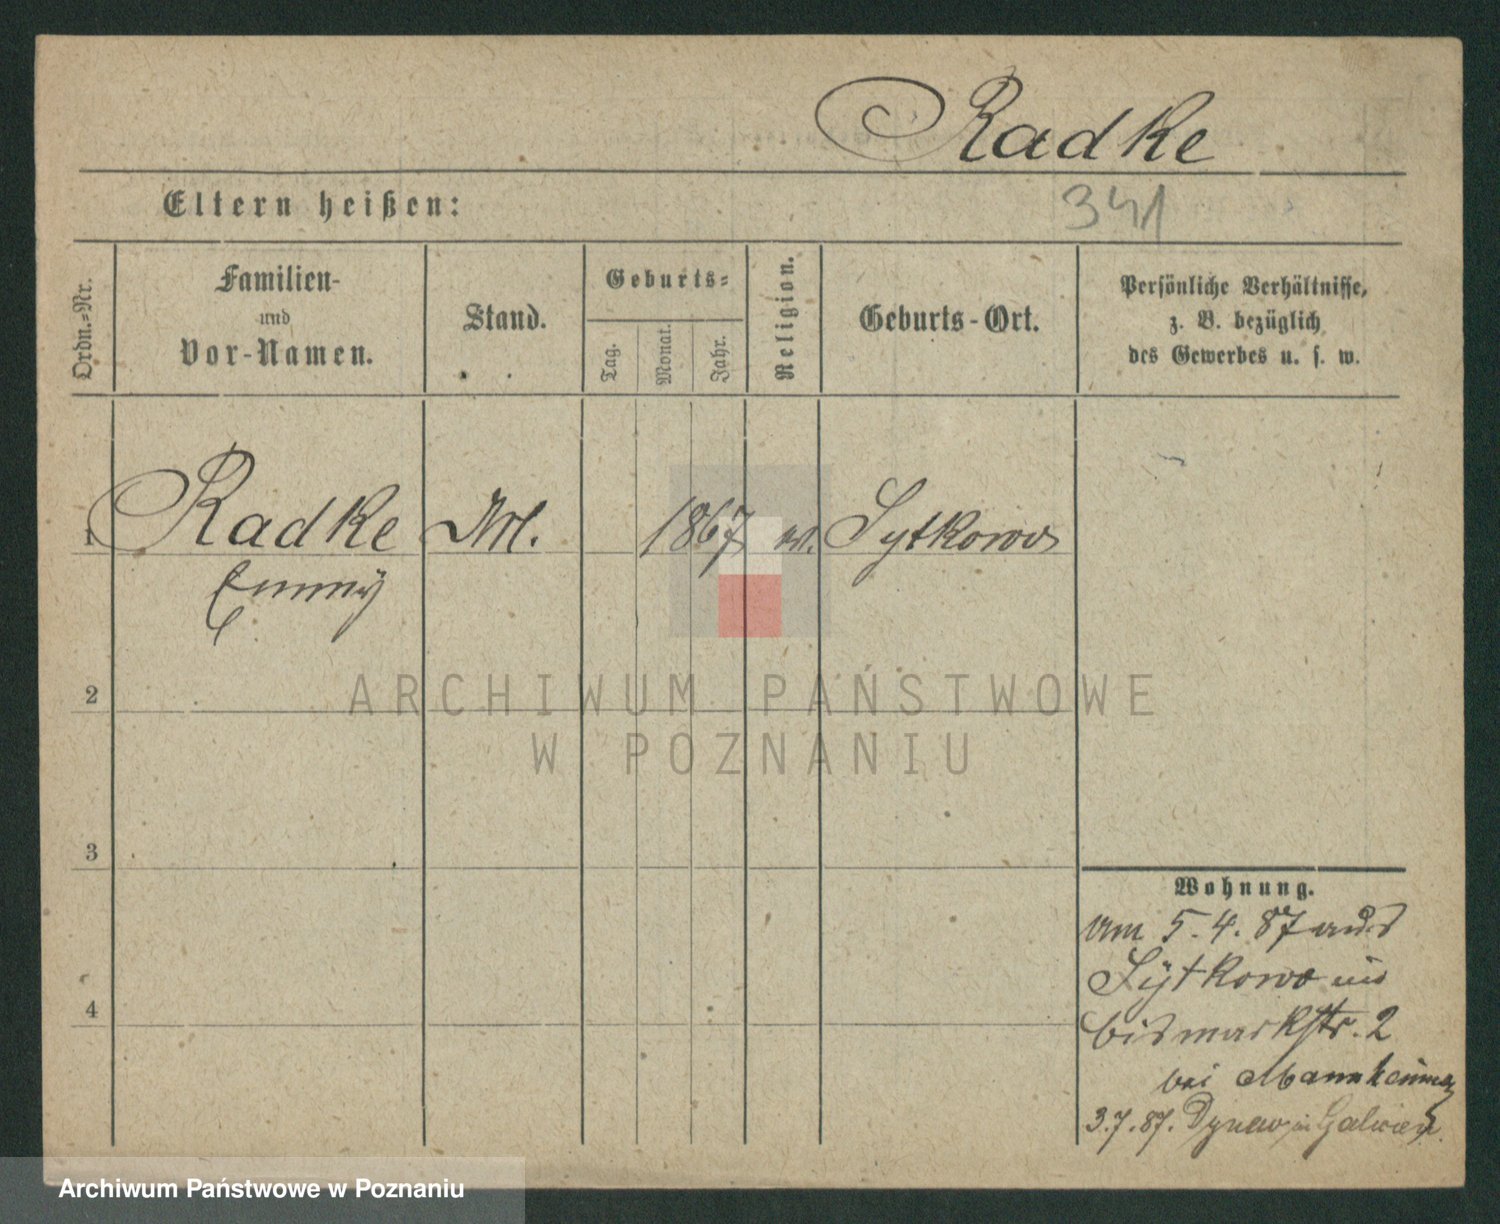 Radke
Eltern heißen:
341
Ordn.-Nr.
Familien-
und
Vor-Namen.
Stand.
Geburts-
Tag.
Monat.
Jahr.
Religion.
Geburts-Ort.
Persönliche Verhältnisse,
z. B. bezüglich
des Gewerbes u. s. w.
1 Radke 1867 Sytkowo
Emmy
2
3
4
Wohnung.
Am 5.4.87 aus
Sytkowo
bismarkstr. 2
bei
3.7.87. in Galizien
ARCHIWUM PAŃSTWOWE
W POZNANIU
Archiwum Państwowe w Poznaniu